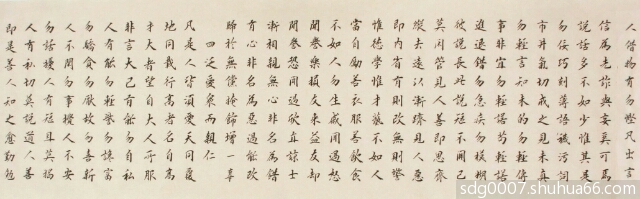 人借物有勿慳凡出言
信為先詐與妄奚可焉
說話多不如少惟其是
勿佞巧刻薄語穢污詞
市井氣切戒之見未真
勿輕言知未的勿輕傳
事非宜勿輕諾苟輕諾
進退錯勿急疾勿模糊
彼說長此說短不關己
莫閒管見人善即思齊
縱去遠以漸躋見人惡
即內省有則改無則警
惟德學惟才藝不如人
當自勵若衣服若飲食
不如人勿生慼聞過怒
聞譽樂損友來益友卻
聞譽恐聞過欣直諒士
漸相親無心非名為錯
有心非名為惡過能改
歸於無倘掩飾增一辜
四泛愛眾而親仁
凡是人皆須愛天同覆
地同載行高者名自高
才大者望自大人所服
非言大己有能勿自私
人有能勿輕訾勿諂富
勿驕貧勿厭故勿喜新
人不閒勿事攪人不安
勿話擾人有短切莫揭
人有私切莫說道人善
即是善人知之愈勤勉
sdg0007.shuhua66.com